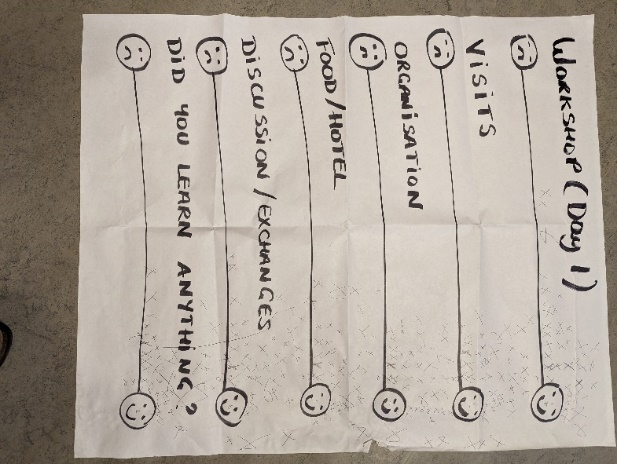 WORKSHOP (Day 1)
VISITS
ORGANISATION
FOOD/HOTEL
DISCUSSION/EXCHANGES
DID YOU LEARN ANYTHING?